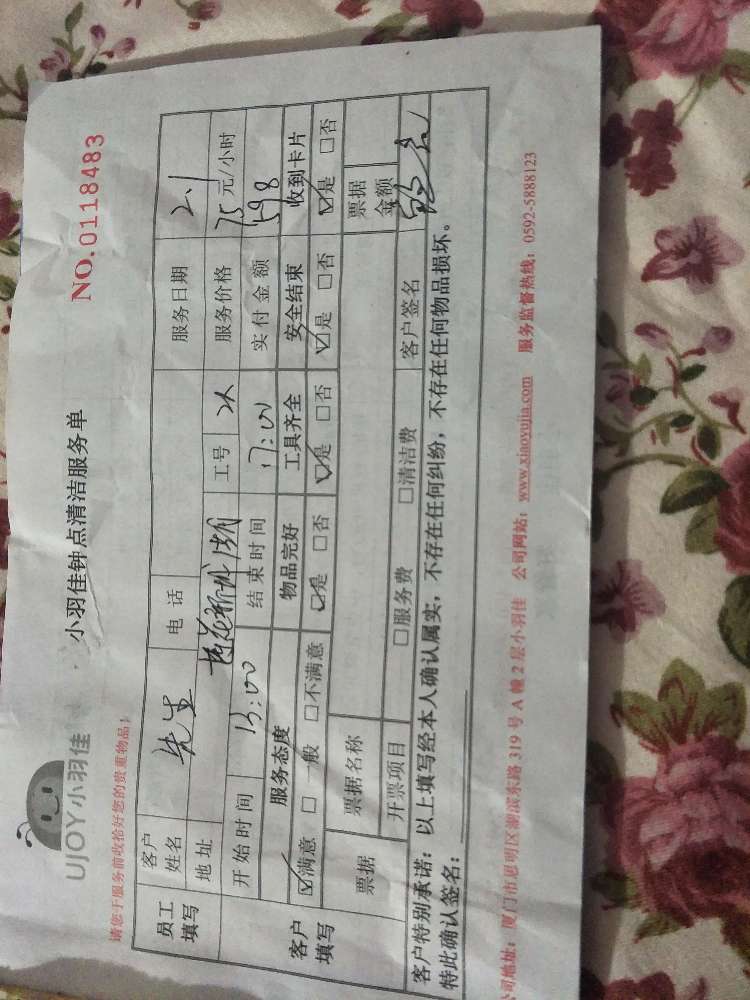 UJOY小羽佳
小羽佳钟点清洁服务单
NO.0118483
请您于服务前收拾好您的贵重物品！
员工填写 客户姓名 先生 电话 服务日期 2.1
地址 工号 2人 服务价格 75元/小时
客户填写 开始时间 13:00 结束时间 17:00 实付金额 598
服务态度 物品完好 工具齐全 安全结束 收到卡片
☑满意 □一般 □不满意 ☑是 □否 ☑是 □否 ☑是 □否 ☑是 □否
票据 票据名称 票据金额
开票项目 □服务费 □清洁费 客户签名
客户特别承诺：以上填写经本人确认属实，不存在任何纠纷，不存在任何物品损坏。
特此确认签名：
公司地址：厦门市思明区湖滨东路319号A幢2层小羽佳 公司网站：www.xiaoyujia.com 服务监督热线：0592-5888123